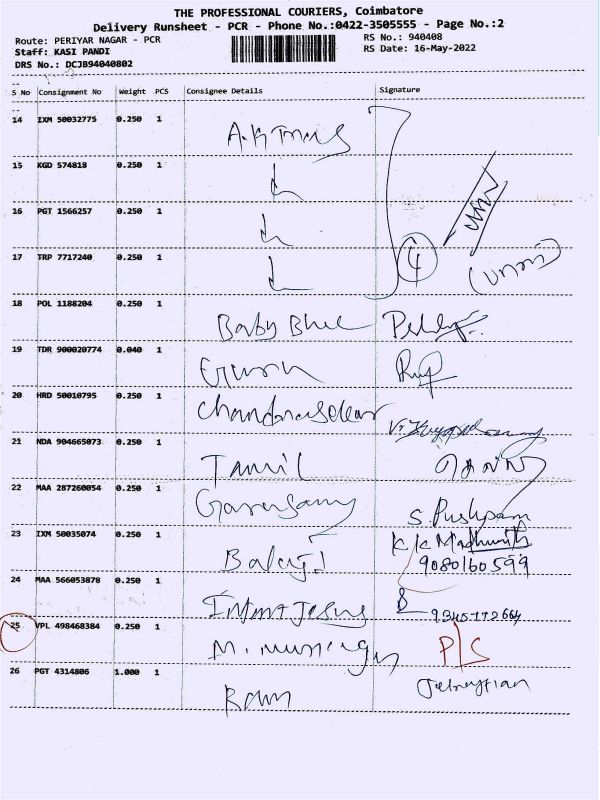 THE PROFESSIONAL COURIERS, Coimbatore
Delivery Runsheet - PCR - Phone No.:0422-3505555 - Page No.:2
Route: PERIYAR NAGAR - PCR
RS No.: 940408
Staff: KASI PANDI
RS Date: 16-May-2022
DRS No.: DCJB94040802
S No Consignment No Weight PCS Consignee Details Signature
14 IXM 50032775 0.250 1
15 KGD 574818 0.250 1
16 PGT 1566257 0.250 1
17 TRP 7717240 0.250 1
4
18 POL 1188204 0.250 1 Baby Blue
19 TDR 900020774 0.040 1
20 HRD 50010795 0.250 1 Chandrasekar
21 NDA 904665073 0.250 1 Tamil
22 MAA 287260054 0.250 1 S. Pushpam
23 IXM 50035074 0.250 1 Balaji K K Madhumith
9080160599
24 MAA 566053878 0.250 1 Infant Jesus
25 VPL 498468384 0.250 1 P/S
26 PGT 4314806 1.000 1 Ram